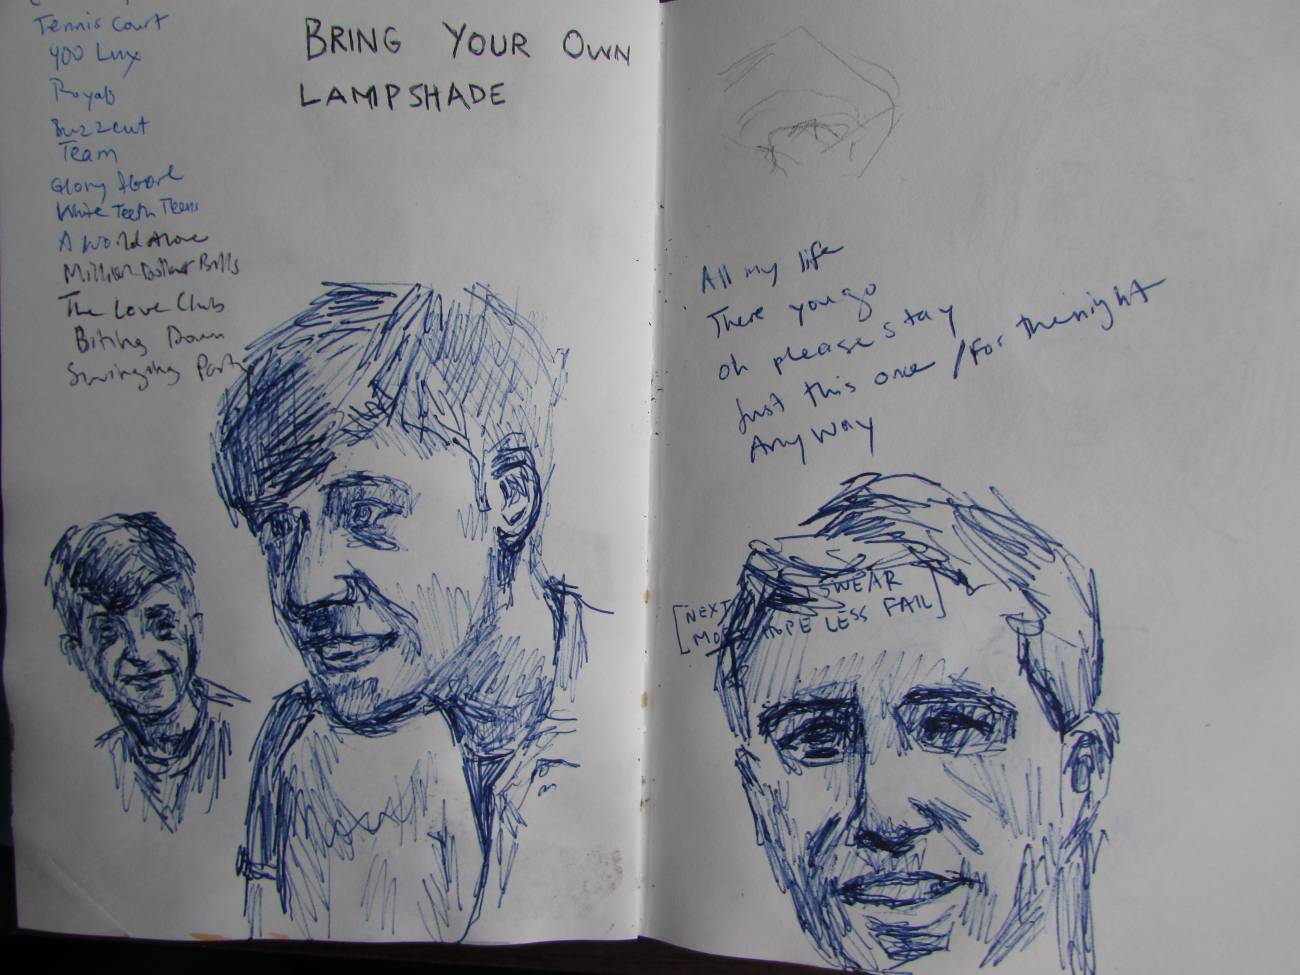 Tennis Court
400 Lux
Royals
Buzzcut
Team
Glory & Gore
White Teeth Teens
A World Alone
Million Dollar Bills
The Love Club
Biting Down
Swinging Party
BRING YOUR OWN
LAMPSHADE
All my life
There you go
oh please stay
Just this once / For the night
Any Way
[NEXT SWEAR
MORE HOPE LESS FAIL]